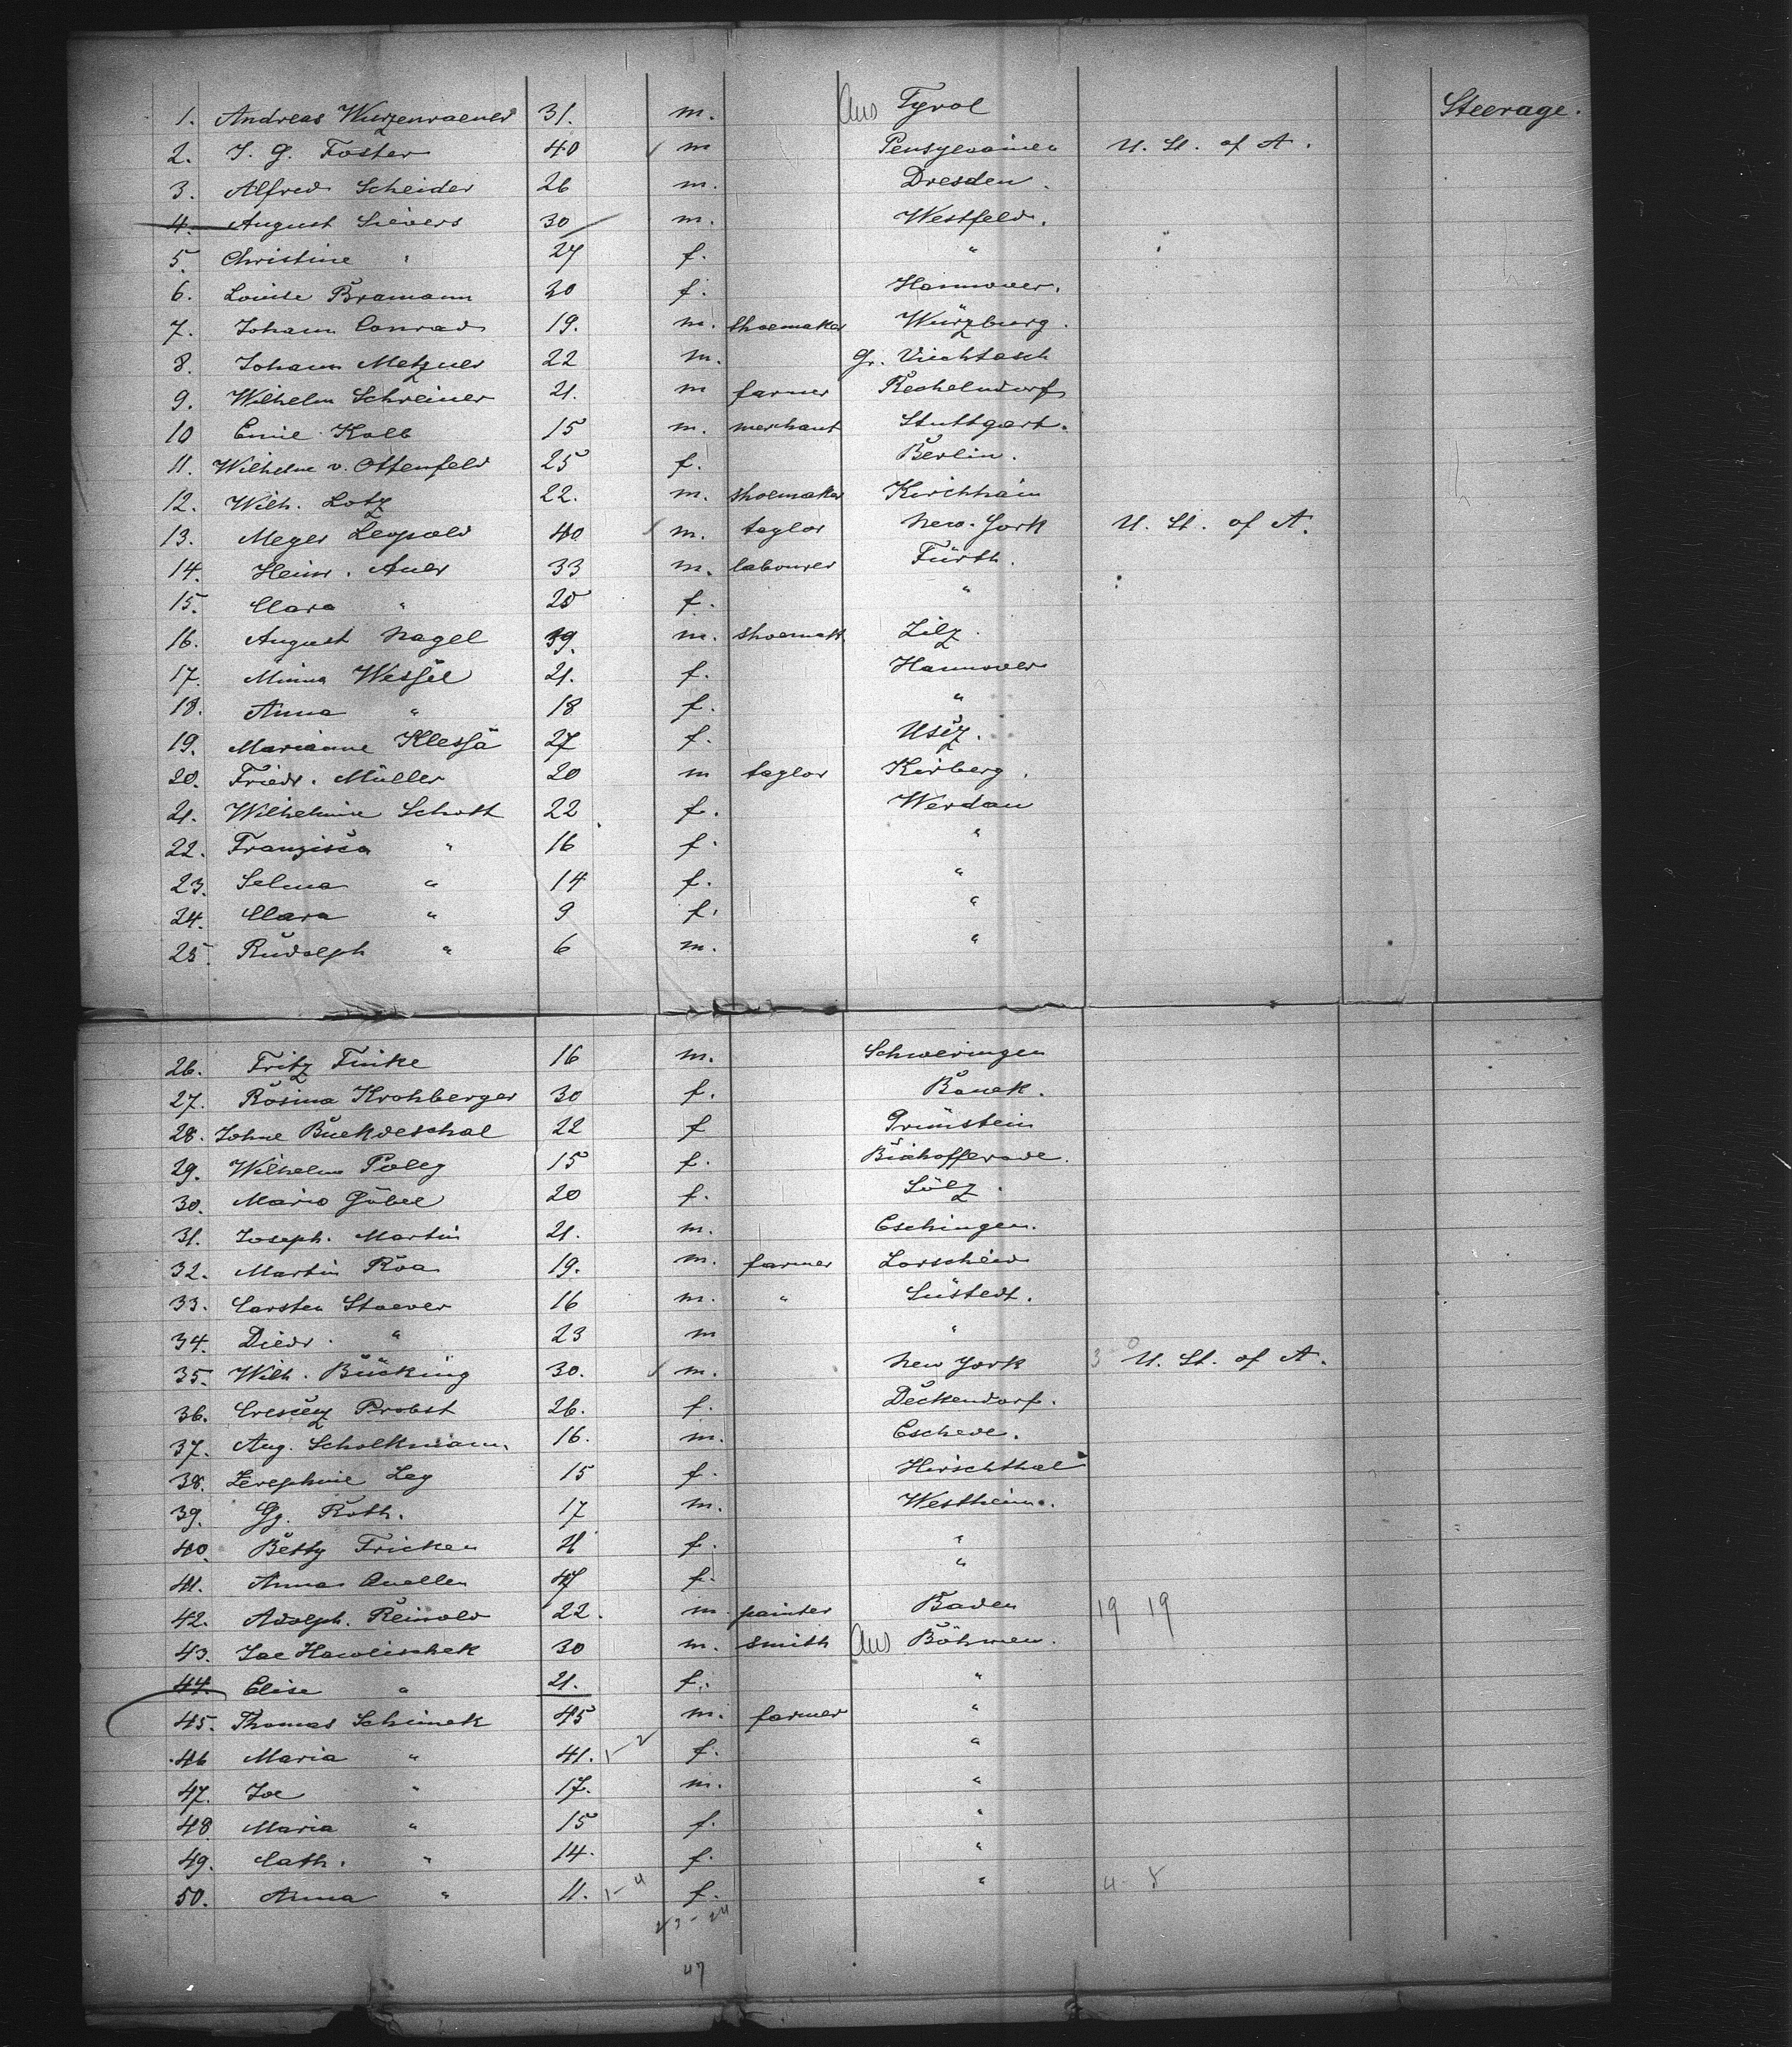 1. Andreas Wurzenraener 31. m. Aus Tyrol Steerage.
2. J. G. Foster 40 m Pensylvainien U. St. of A.
3. Alfred Scheider 26 m. Dresden.
4. August Sievers 30 m. Westfeld.
5. Christine " 27 f. "
6. Louise Bramann 30 f. Hannover.
7. Johann Conrad 19. m. shoemaker Würzburg.
8. Johann Metzner 22 m. Gr. Viechtasch
9. Wilhelm Schreiner 21. m farmer Rechelndorf
10 Emil Kolb 15 m. merchant Stuttgart.
11. Wilhelme v. Ottenfeld 25 f. Berlin.
12. Wilh. Lotz 22. m. shoemaker Kirchhain
13. Meyer Leopold 40 m. taylor New-York U. St. of A.
14. Heinr. Auer 33 m. labourer Fürth.
15. Clara " 25 f. "
16. August Nagel 39. m. shoemak. Zilz.
17. Minna Wessel 21. f. Hannover
18. Anna " 18 f. "
19. Marianne Klessa 27 f. Usez.
20. Friedr. Müller 20 m taylor Kirberg.
21. Wilhelmine Schott 22 f. Werdau
22. Franzisca " 16 f. "
23. Selma " 14 f. "
24. Clara " 9 f. "
25. Rudolph " 6 m. "
26. Fritz Finke 16 m. Schweringen
27. Rosina Krohberger 30 f. Bauek.
28. Johne Buekdeschal 22 f Grünstein
29. Wilhelm Poleg 15 f. Bishofferode.
30. Marie Göbel 20 f. Sülz.
31. Joseph. Martin 21. m. Eschingen.
32. Martin Roa 19. m. farmer Lorscheid
33. Carsten Stoever 16 m. " Süstedt.
34. Diedr. " 23 m "
35. Wilh. Bücking 30. m. New York 3-0 U. St. of A.
36. Crescenz Probst 26. f. Deckendorf.
37. Aug. Scholkmann 16. m. Eschede.
38. Zerephine Ley 15 f. Hirschthal
39. Gg. Roth. 17 m. Westheim.
40. Betty Fricken f. "
41. Anna Quellen 47 f. "
42. Adolph. Reinold 22. m. painter Baden 19 19
43. Joe Hawlischek 30 m. smith Aus Böhmen.
44. Elise " 21. f. "
45. Thomas Schimek 45 m. farmer "
46 Maria " 41. 1-2 f. "
47. Joe " 17. m. "
48 Maria " 15 f. "
49. Cath. " 14. f. "
50. Anna " 11. 1-4 f. " 4-8
23-24
47